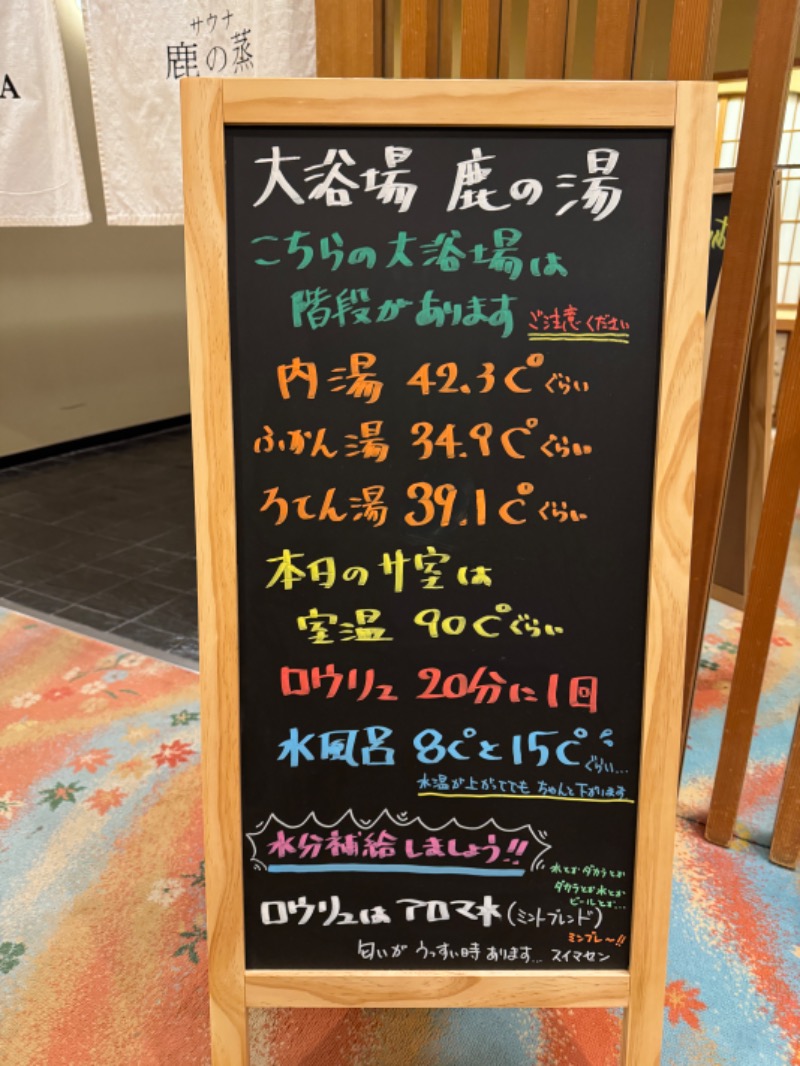 サウナ
鹿の蒸
A
大浴場 鹿の湯
こちらの大浴場は
階段があります ご注意ください
内湯 42.3℃ぐらい
ふかん湯 34.9℃ぐらい
ろてん湯 39.1℃ぐらい
本日のサ室は
室温 90℃ぐらい
ロウリュ 20分に1回
水風呂 8℃と15℃ぐらい...
水温が上がってても ちゃんと下がります
水分補給しましょう!!
水とかダカラとか
ダカラとか水とか
ビールとか...
ロウリュはアロマ水(ミントブレンド)
ミンブレ〜!!
匂いが うっすい時 あります... スイマセン